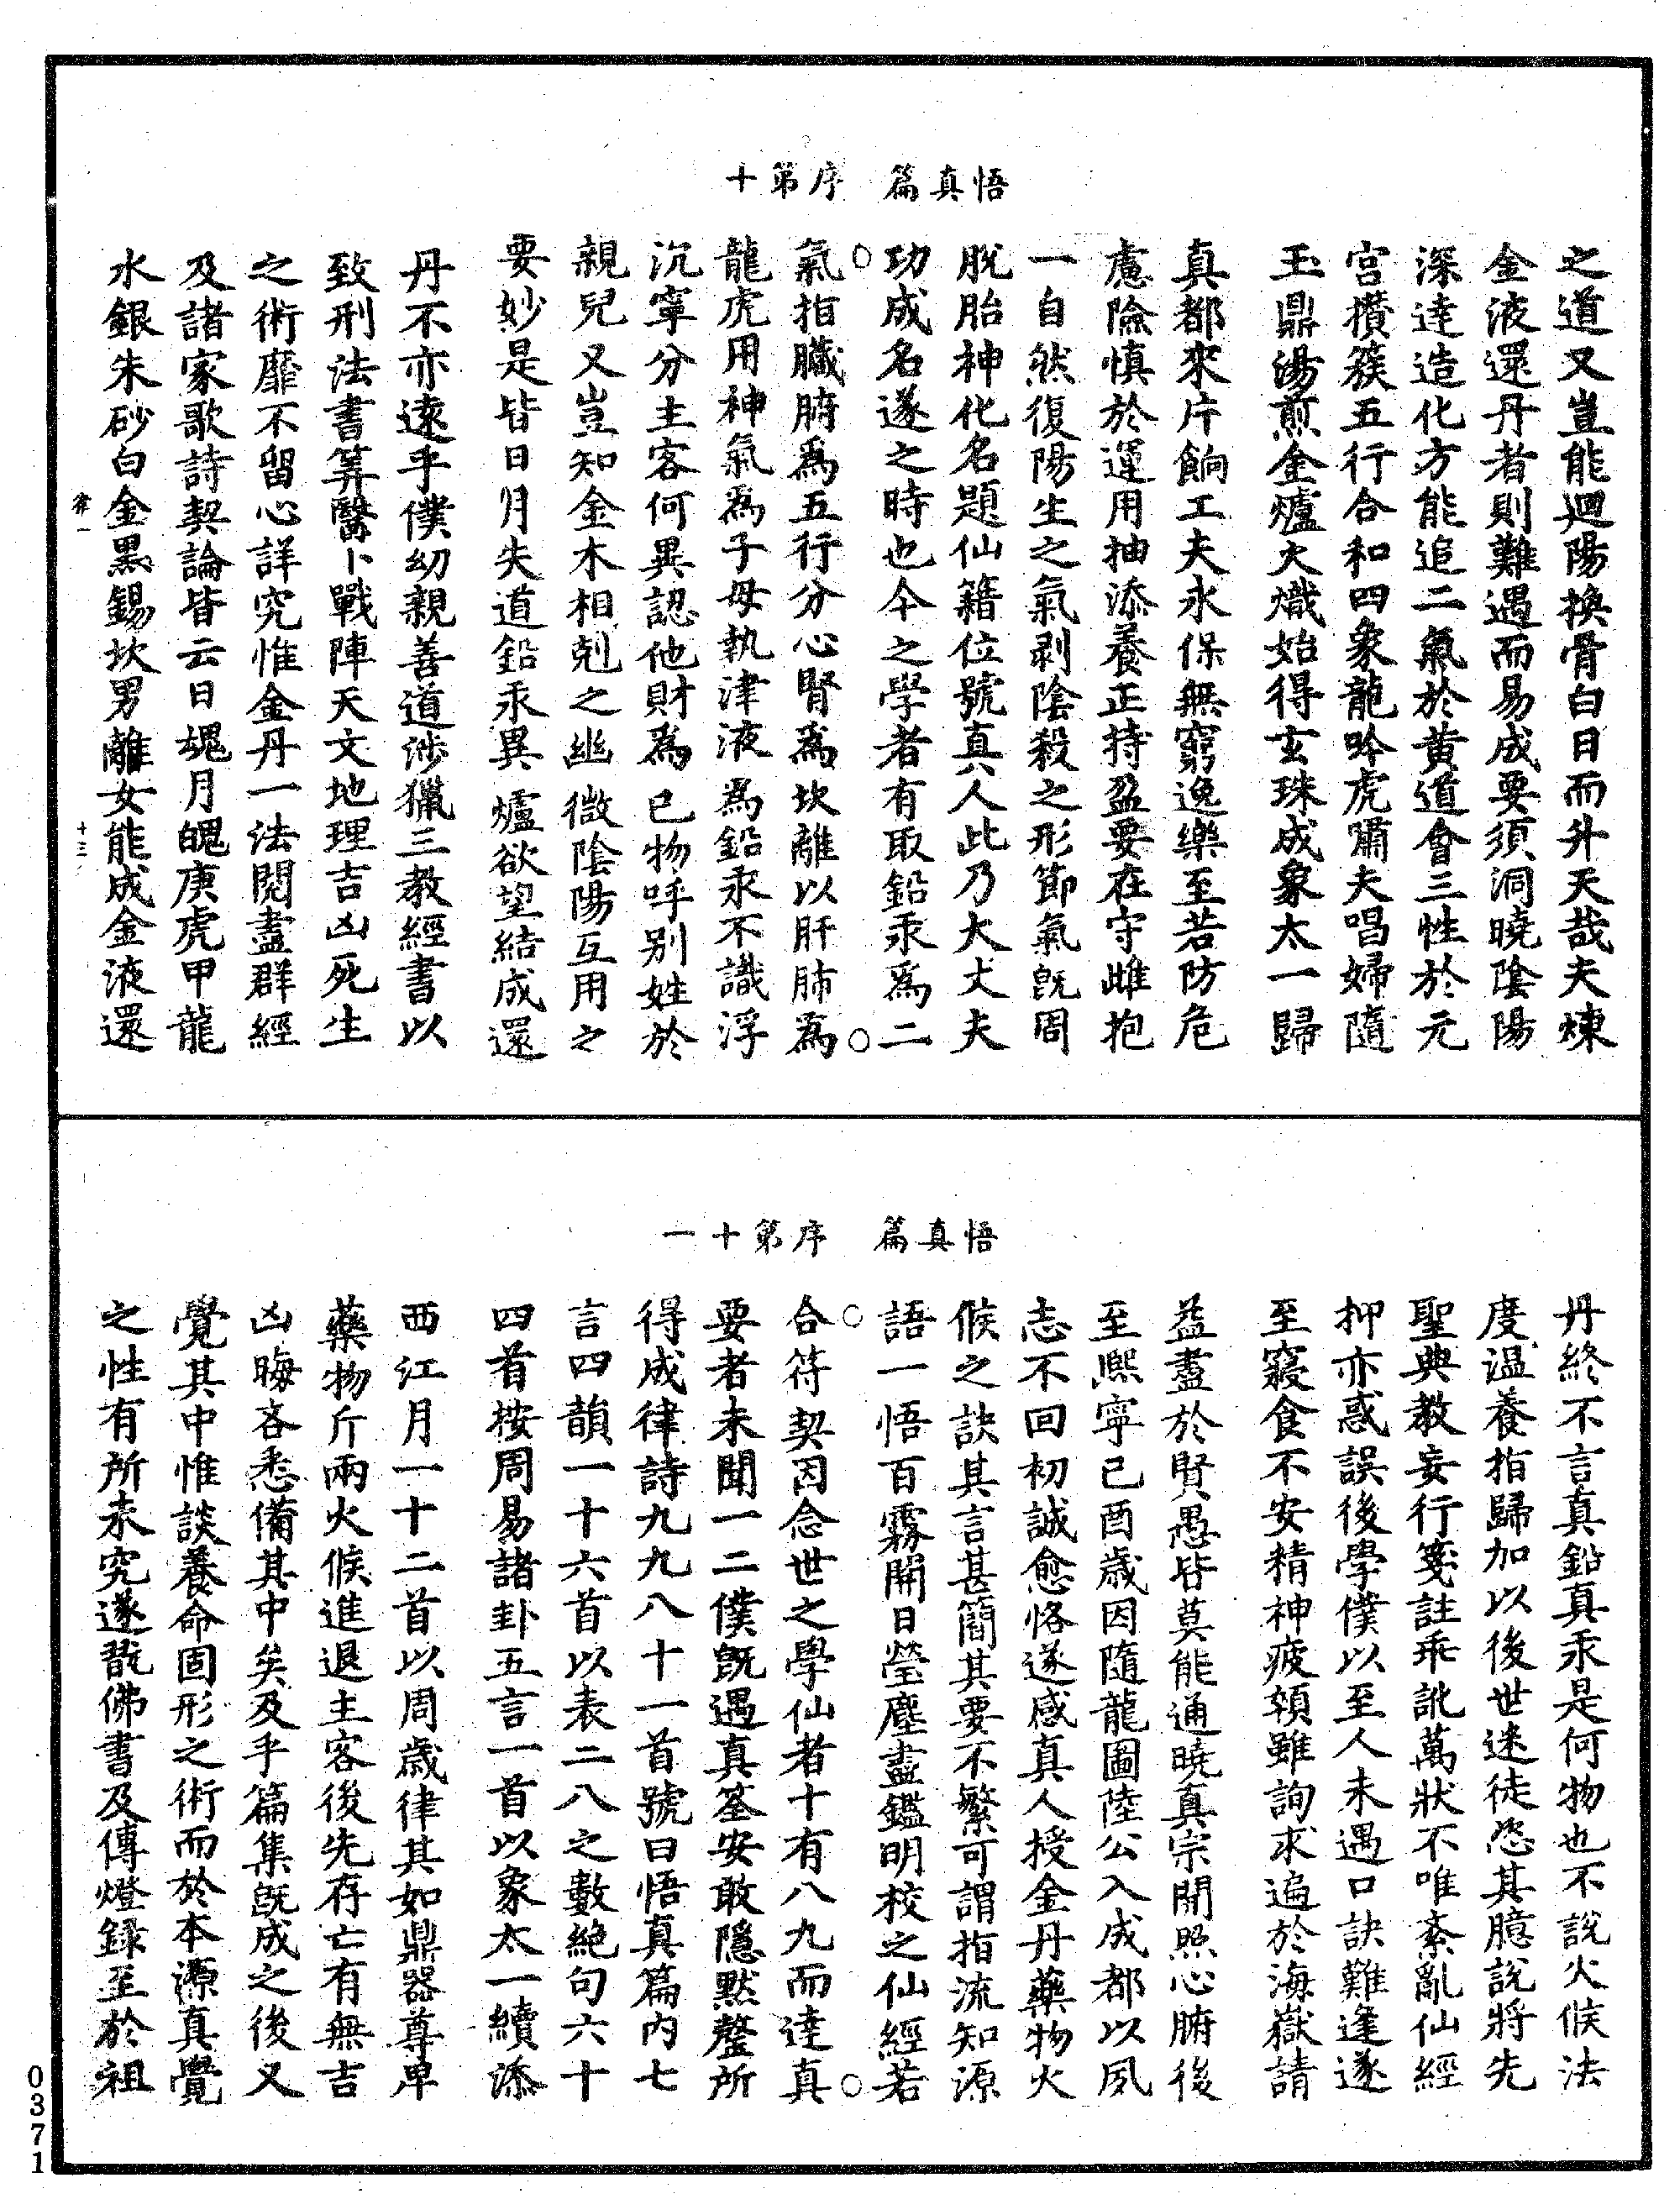 悟真篇　序第十
之道又豈能迴陽換骨白日而升天哉夫煉
金液還丹者則難遇而易成要須洞曉陰陽
深達造化方能追二氣於黃道會三性於元
宮攢簇五行合和四象龍吟虎嘯夫唱婦隨
玉鼎湯煎金爐火熾始得玄珠成象太一歸
真都來片餉工夫永保無窮逸樂至若防危
慮險慎於運用抽添養正持盈要在守雌抱
一自然復陽生之氣剥陰殺之形節氣既周
脫胎神化名題仙籍位號真人此乃大丈夫
功成名遂之時也今之學者有取鉛汞為二
氣指臟腑為五行分心腎為坎離以肝肺為
龍虎用神氣為子母執津液為鉛汞不識浮
沉寧分主客何異認他財為己物呼別姓於
親兒又豈知金木相剋之幽微陰陽互用之
要妙是皆日月失道鉛汞異爐欲望結成還
丹不亦遠乎僕幼親善道涉獵三教經書以
致刑法書筭醫卜戰陣天文地理吉凶死生
之術靡不留心詳究惟金丹一法閱盡群經
及諸家歌詩契論皆云日魂月魄庚虎甲龍
水銀朱砂白金黑錫坎男離女能成金液還
律一　十三
悟真篇　序第十一
丹終不言真鉛真汞是何物也不說火候法
度溫養指歸加以後世迷徒恣其臆說將先
聖典教妄行箋註乖訛萬狀不唯紊亂仙經
抑亦惑誤後學僕以至人未遇口訣難逢遂
至寢食不安精神疲顇雖詢求遍於海嶽請
益盡於賢愚皆莫能通曉真宗開照心腑後
至熙寧己酉歲因隨龍圖陸公入成都以夙
志不回初誠愈恪遂感真人授金丹藥物火
候之訣其言甚簡其要不繁可謂指流知源
語一悟百霧開日瑩塵盡鑑明校之仙經若
合符契因念世之學仙者十有八九而達真
要者未聞一二僕既遇真筌安敢隱默罄所
得成律詩九九八十一首號曰悟真篇內七
言四韻一十六首以表二八之數絕句六十
四首按周易諸卦五言一首以象太一續添
西江月一十二首以周歲律其如鼎器尊卑
藥物斤兩火候進退主客後先存亡有無吉
凶晦吝悉備其中矣及乎篇集既成之後又
覺其中惟談養命固形之術而於本源真覺
之性有所未究遂翫佛書及傳燈錄至於祖
0371